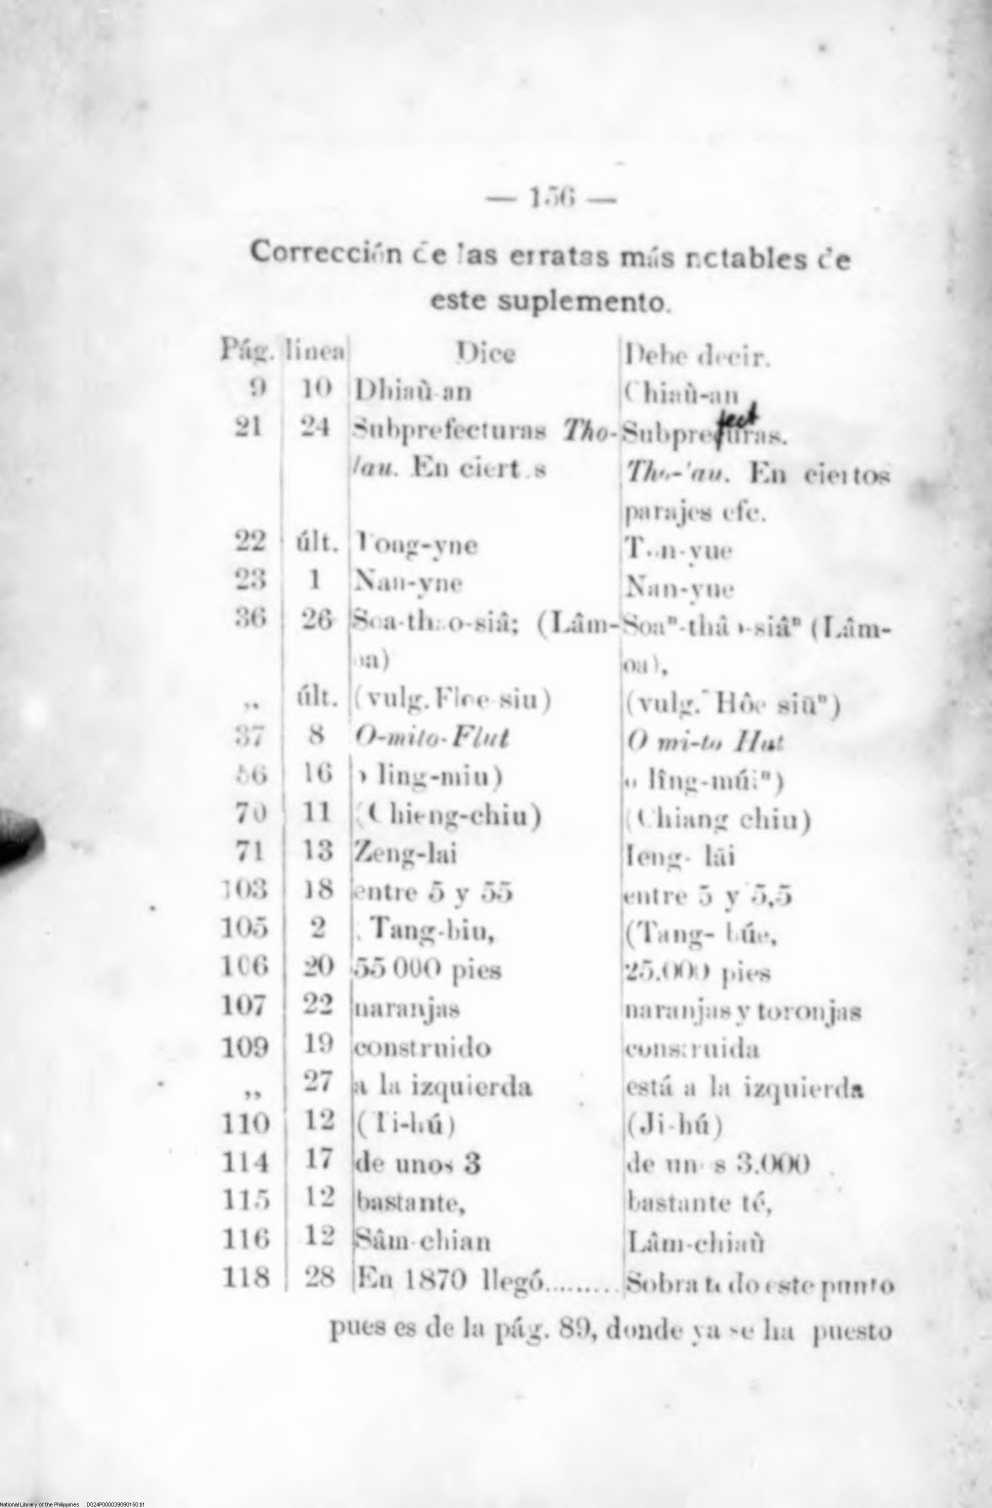 — 156 —
Corrección de las erratas más notables de
este suplemento.
Pág. línea Dice Debe decir.
9 10 Dhiaù-an Chiaù-an
21 24 Subprefecturas Tho- Subprefecturas.
lau. En ciertos Tho-lau. En ciertos
parajes efc.
22 últ. Tong-yne Ton-yue
23 1 Nan-yne Nan-yue
36 26 Soa-thao-siâ; (Lâm- Soaⁿ-thâo-siâⁿ (Lâm-
oa) oa),
„ últ. (vulg. Floe siu) (vulg. Hôe siūⁿ)
37 8 O-mito-Flut O mi-to Hut
56 16 o ling-miu) o lîng-múiⁿ)
70 11 (Chieng-chiu) (Chiang chiu)
71 13 Zeng-lai Ieng- lāi
103 18 entre 5 y 55 entre 5 y 5,5
105 2 Tang-biu, (Tang- búe,
106 20 55 000 pies 25.000 pies
107 22 naranjas naranjas y toronjas
109 19 construido construida
„ 27 a la izquierda está a la izquierda
110 12 (Ti-hú) (Ji-hú)
114 17 de unos 3 de unos 3.000
115 12 bastante, bastante té,
116 12 Sâm-chian Lâm-chiaù
118 28 En 1870 llegó......... Sobra todo este punto
pues es de la pág. 89, donde ya se ha puesto
National Library of the Philippines